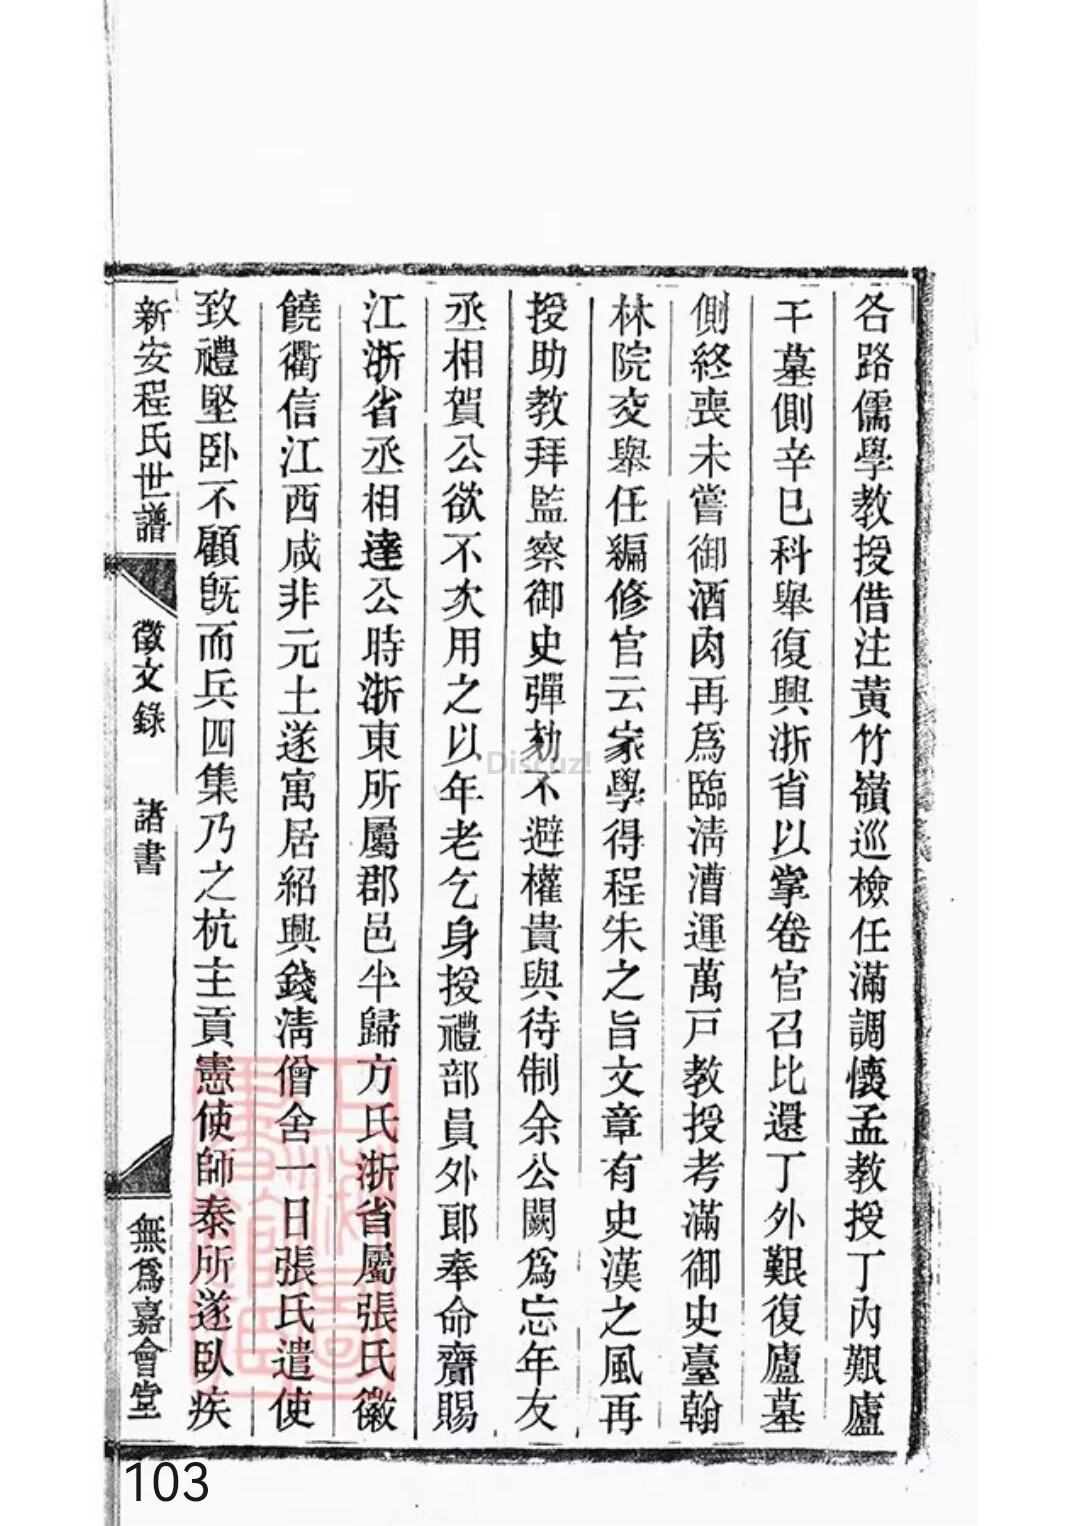 各路儒學教授借注黃竹嶺巡檢任滿調懷孟教授丁內艱廬
于墓側辛巳科舉復興浙省以掌卷官召比還丁外艱復廬墓
側終喪未嘗御酒肉再爲臨淸漕運萬戸教授考滿御史臺翰
林院交舉任編修官云家學得程朱之旨文章有史漢之風再
授助教拜監察御史彈劾不避權貴與待制余公闕爲忘年友
丞相賀公欲不次用之以年老乞身授禮部員外郎奉命齎賜
江浙省丞相達公時浙東所屬郡邑半歸方氏浙省屬張氏徽
饒衢信江西咸非元土遂寓居紹興錢淸僧舍一日張氏遣使
致禮堅卧不顧旣而兵四集乃之杭主貢憲使師泰所遂臥疾
新安程氏世譜
徵文錄 諸書
無爲嘉會堂
Discuz!
103